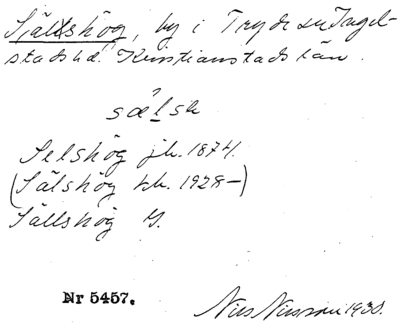 Själshög, by i Tryde sn Ingel-
stads hd. Kristianstads län.
sælsk
Selshög jb. 1874.
(Sälshög kk. 1928-)
Sällshög G.
Nr 5457.
Nils Nilsson 1930.